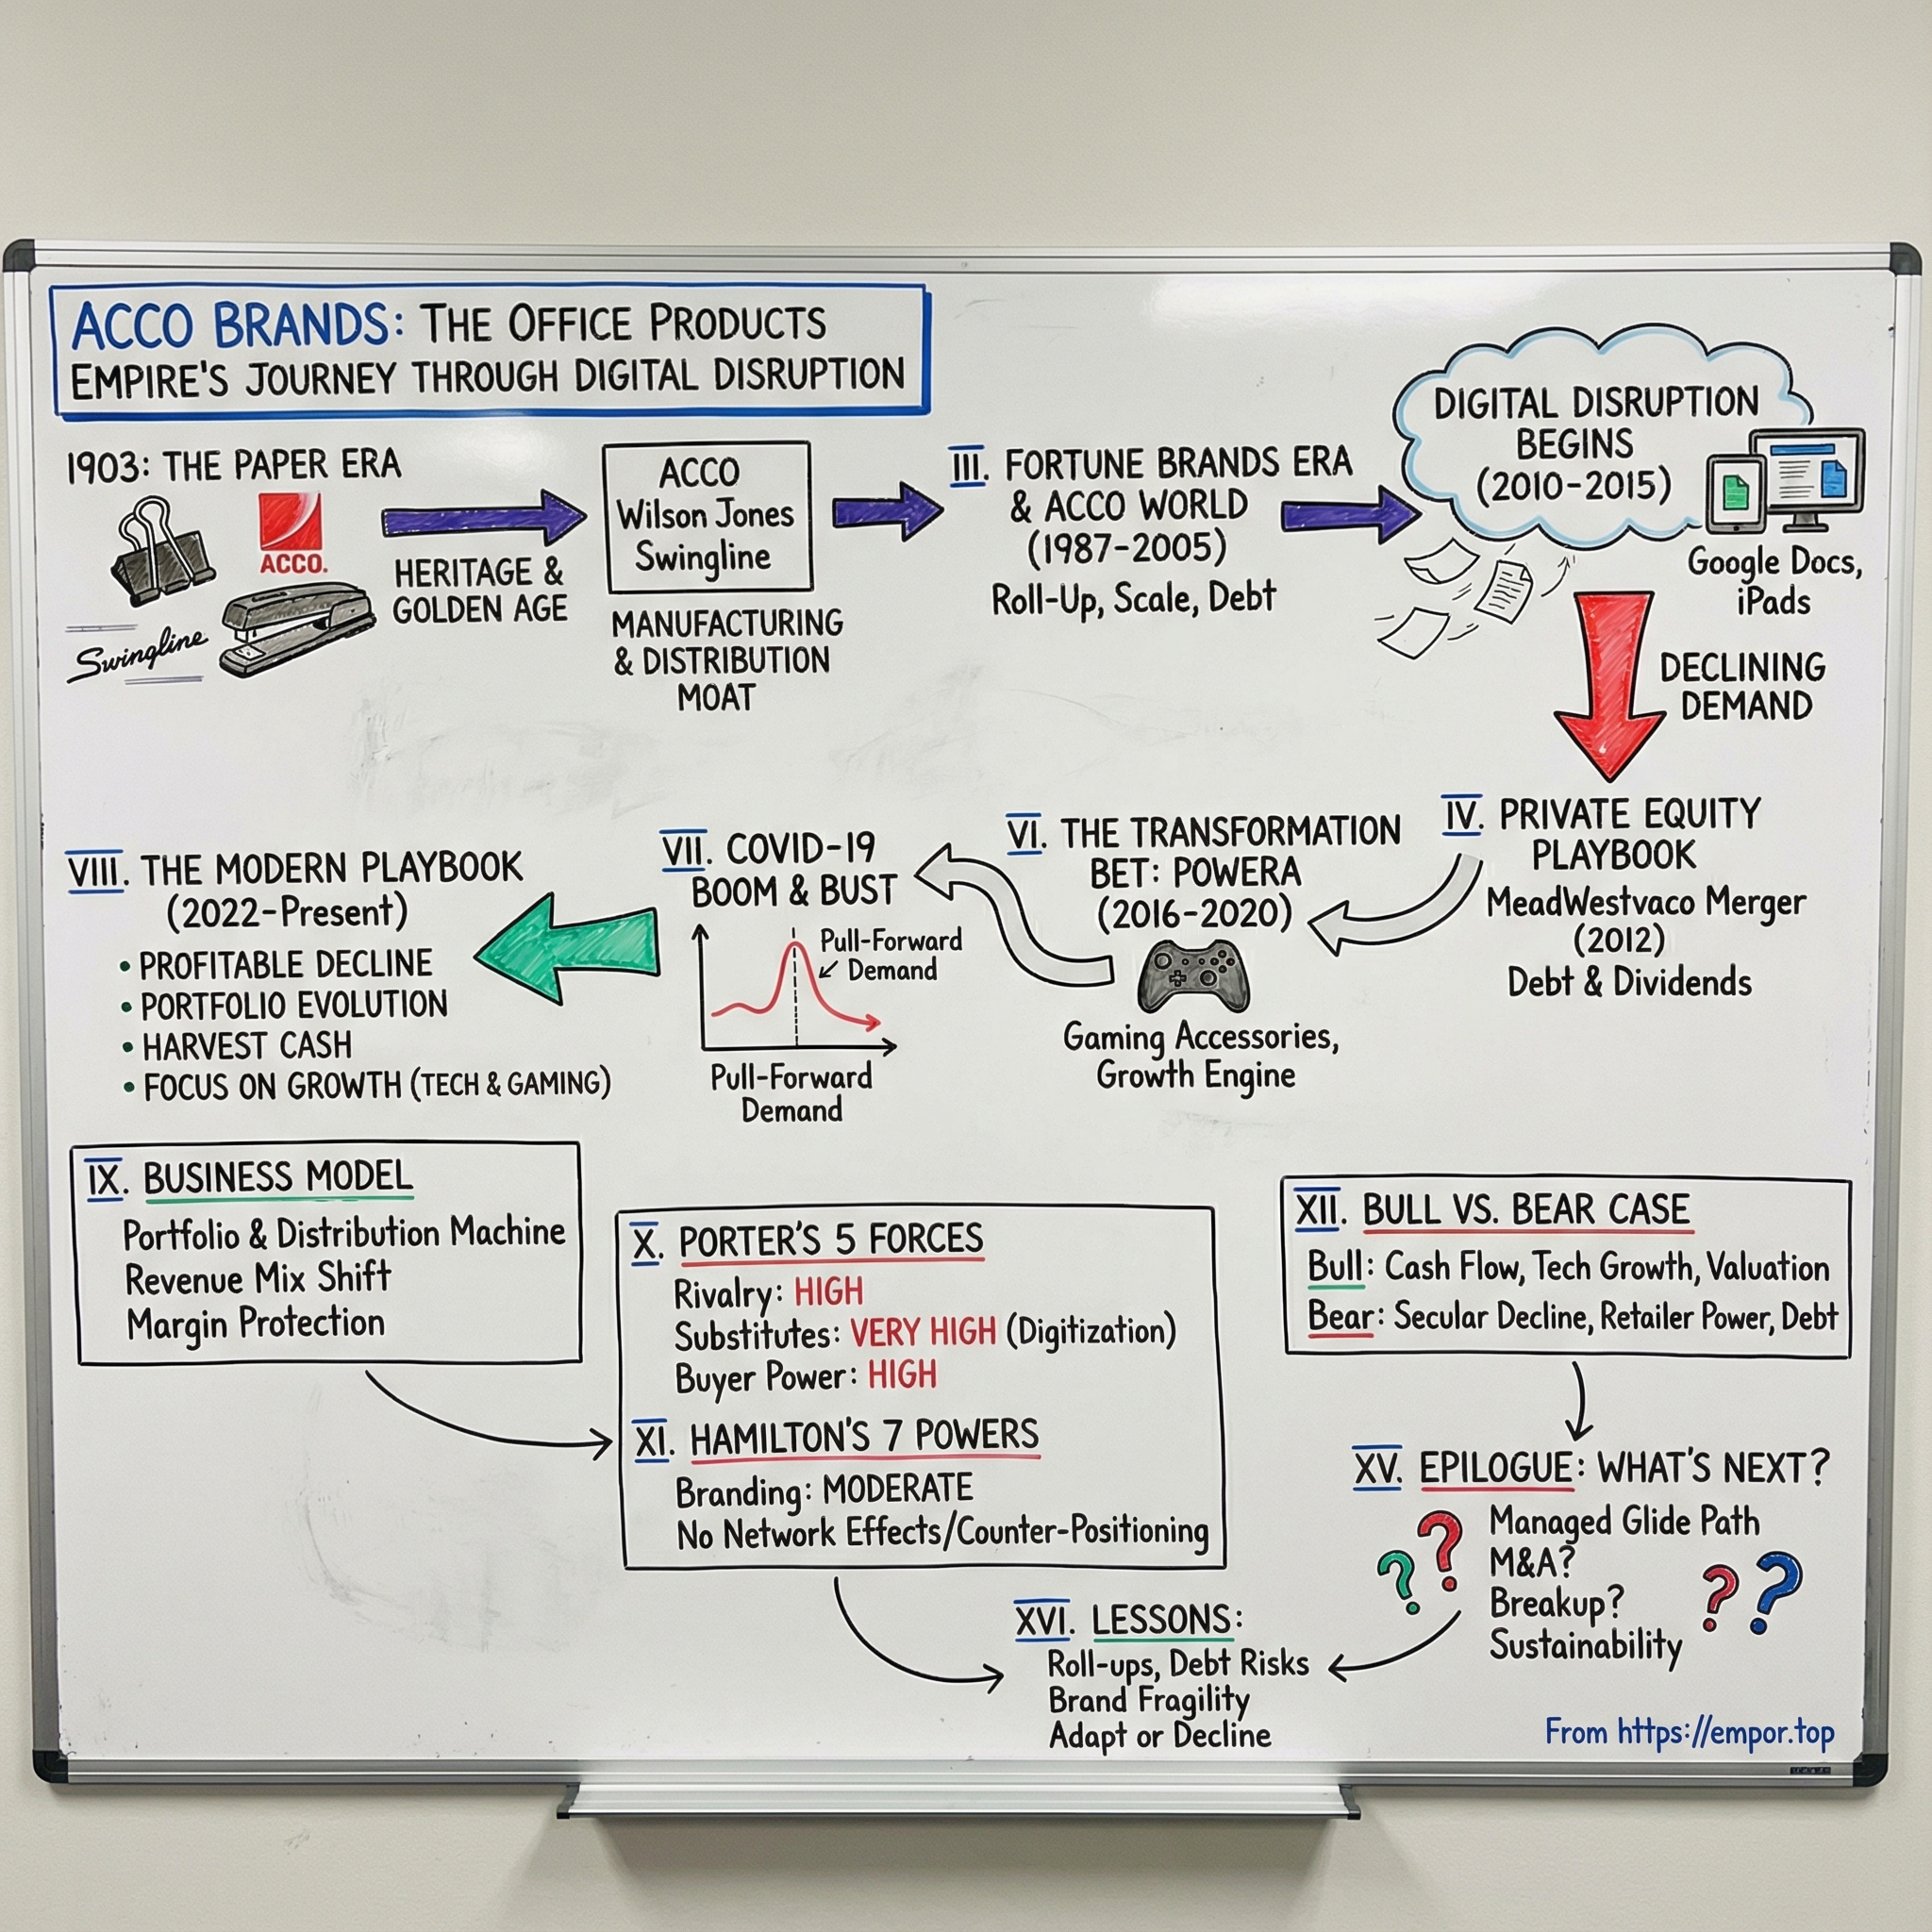 ACCO BRANDS: THE OFFICE PRODUCTS
EMPIRE'S JOURNEY THROUGH DIGITAL DISRUPTION
1903: THE PAPER ERA
ACCO.
Swingline
HERITAGE &
GOLDEN AGE
ACCO
Wilson Jones
Swingline
MANUFACTURING
& DISTRIBUTION
MOAT
III. FORTUNE BRANDS ERA
& ACCO WORLD
(1987-2005)
Roll-Up, Scale, Debt
DIGITAL DISRUPTION
BEGINS
(2010-2015)
Google Docs,
iPads
DECLINING
DEMAND
IV. PRIVATE EQUITY
PLAYBOOK
MeadWestvaco Merger
(2012)
Debt & Dividends
VI. THE TRANSFORMATION
BET: POWERA
(2016-2020)
Gaming Accessories,
Growth Engine
VII. COVID-19
BOOM & BUST
Pull-Forward
Demand
Pull-Forward
Demand
VIII. THE MODERN PLAYBOOK
(2022-Present)
• PROFITABLE DECLINE
• PORTFOLIO EVOLUTION
• HARVEST CASH
• FOCUS ON GROWTH (TECH & GAMING)
IX. BUSINESS MODEL
Portfolio & Distribution Machine
Revenue Mix Shift
Margin Protection
X. PORTER'S 5 FORCES
Rivalry: HIGH
Substitutes: VERY HIGH (Digitization)
Buyer Power: HIGH
XI. HAMILTON'S 7 POWERS
Branding: MODERATE
No Network Effects/Counter-Positioning
XII. BULL VS. BEAR CASE
Bull: Cash Flow, Tech Growth, Valuation
Bear: Secular Decline, Retailer Power, Debt
XV. EPILOGUE: WHAT'S NEXT?
Managed Glide Path
M&A?
Breakup?
Sustainability
? ? ? ?
XVI. LESSONS:
Roll-ups, Debt Risks
Brand Fragility
Adapt or Decline
From https://empor.top